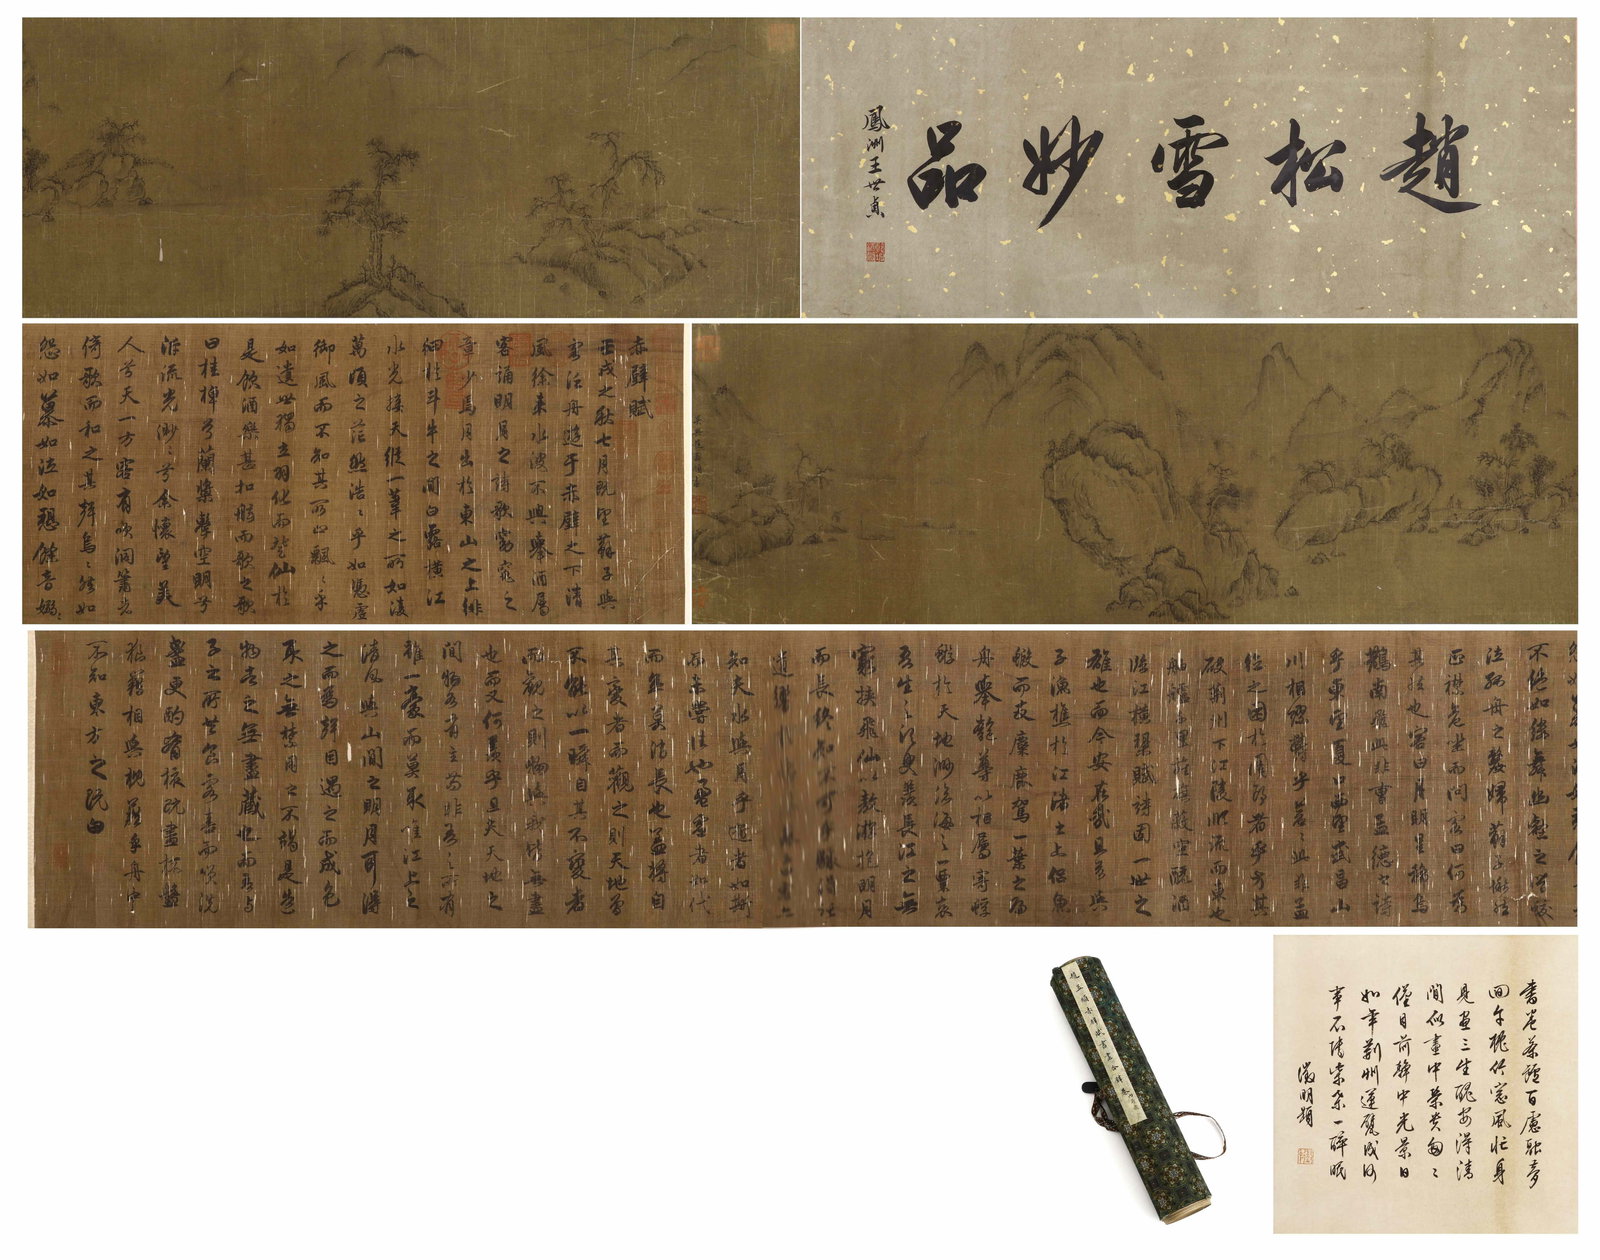 趙松雪妙品
鳳洲王世貞
赤壁賦
壬戌之秋七月既望蘇子與
客泛舟遊于赤壁之下清
風徐來水波不興舉酒屬
客誦明月之詩歌窈窕之
章少焉月出於東山之上徘
徊於斗牛之間白露橫江
水光接天縱一葦之所如淩
萬頃之茫然浩〻乎如憑虛
御風而不知其所止飄〻乎
如遺世獨立羽化而登仙於
是飲酒樂甚扣舷而歌之歌
曰桂棹兮蘭槳擊空明兮
泝流光渺〻兮余懷望美
人兮天一方客有吹洞簫者
倚歌而和之其聲嗚〻然如
怨如慕如泣如愬餘音嫋〻
不絕如縷舞幽壑之潛蛟
泣孤舟之嫠婦蘇子愀然
正襟危坐而問客曰何為
其然也客曰月明星稀烏
鵲南飛此非曹孟德之詩
乎東望夏口西望武昌山
川相繆鬱乎蒼〻此非孟
德之困於周郎者乎方其
破荊州下江陵順流而東也
舳艫千里旌旗蔽空釃酒
臨江橫槊賦詩固一世之
雄也而今安在哉況吾與
子漁樵於江渚之上侶魚
蝦而友麋鹿駕一葉之扁
舟舉匏尊以相屬寄蜉
蝣於天地渺滄海之一粟哀
吾生之須臾羨長江之無
窮挾飛仙以敖遊抱明月
而長終知不可乎驟得託
遺響
知夫水與月乎逝者如斯
而未嘗往也盈虛者如代
而卒莫消長也蓋將自
其變者而觀之則天地曾
不能以一瞬自其不變者
而觀之則物與我皆無盡
也而又何羨乎且夫天地之
間物各有主苟非吾之所有
雖一毫而莫取惟江上之
清風與山間之明月耳得
之而為聲目遇之而成色
取之無禁用之不竭是造
物者之無盡藏也而吾與
子之所共食客喜而笑洗
盞更酌肴核既盡杯盤
狼籍相與枕藉乎舟中
不知東方之既白
趙孟頫赤壁賦書畫合璧卷
書卷茶罏百慮融夢
回午枕竹窗風忙身
見畫三生醜安得清
閒似畫中榮〻
僅目前靜中光景日
如年荊州運甓成何
事不博柴桑一醉眠
徵明題